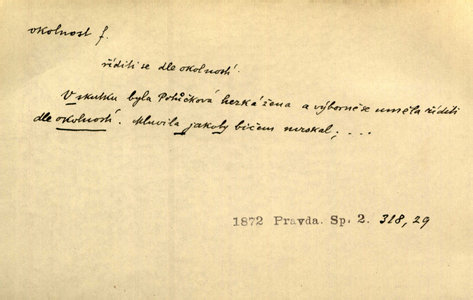 okolnost f.
říditi se dle okolností.
V skutku byla Potůčková hezká žena a výborně se uměla říditi
dle okolností. Mluvila jakoby bičem mrskal; ...
1872 Pravda. Sp. 2. 318, 29